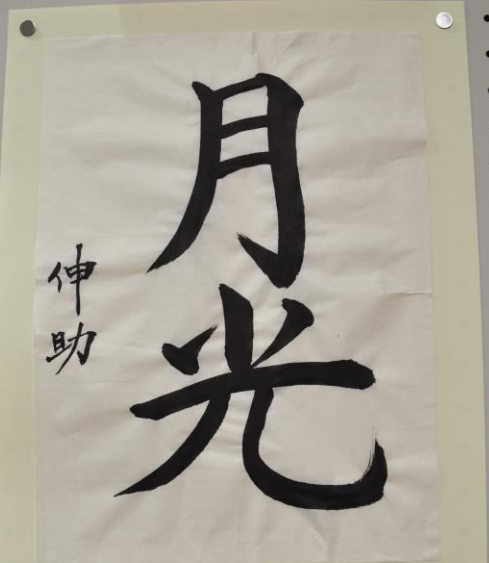 月光
伸助